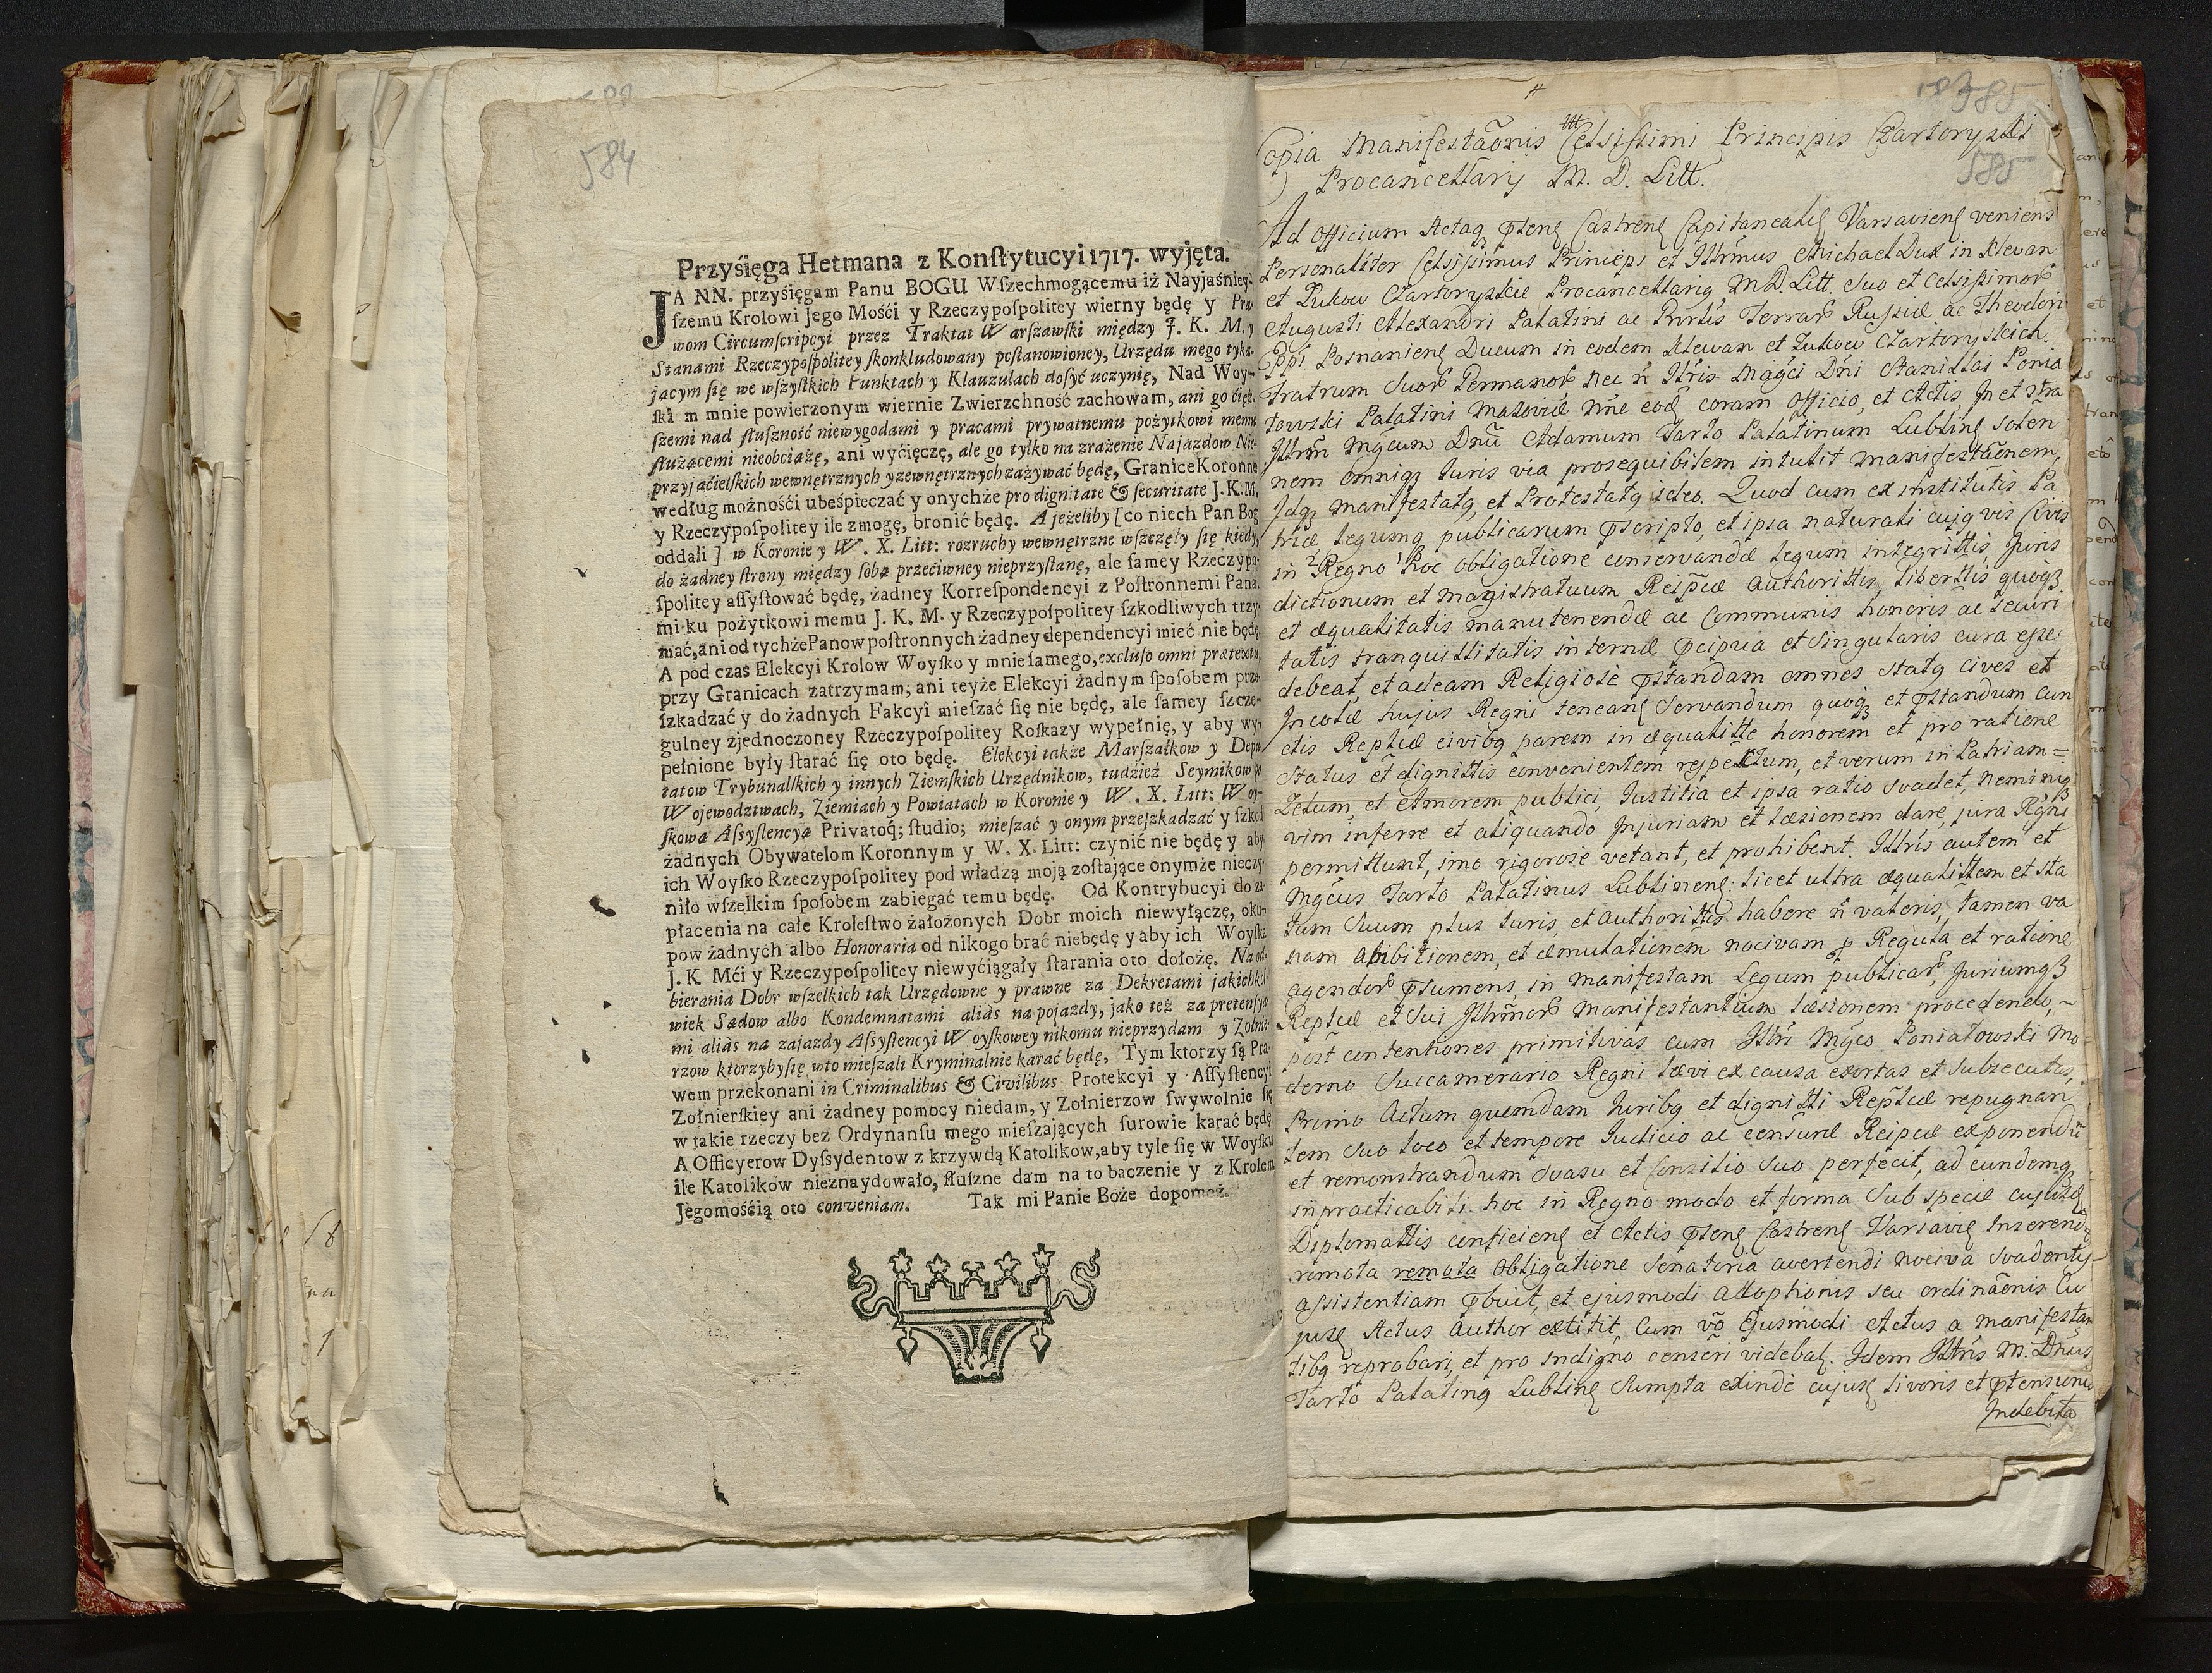 584
Przyśięga Hetmana z Konſtytucyi 1717. wyjęta.
JA NN. przyśięgam Panu BOGU Wſzechmogącemu iż Nayjaśniey-
ſzemu Krolowi Jego Mośći y Rzeczypoſpolitey wierny będę y Pra-
wom Circumſcripcyi przez Traktat Warſzawſki między J. K. M. y
Stanami Rzeczypoſpolitey ſkonkludowany poſtanowioney, Urzędu mego tyka-
jącym ſię we wſzyſtkich Funktach y Klauzulach doſyć uczynię, Nad Woy-
ſki m mnie powierzonym wiernie Zwierzchność zachowam, ani go ćięż-
ſzemi nad ſłuſzność niewygodami y pracami prywatnemu pożytkowi memu
ſłużącemi nieobciążę, ani wyćięczę, ale go tylko na zrażenie Najazdow Nie-
przyjaćielſkich wewnętrznych y zewnętrznych zażywać będę, Granice Koronne
według możnośći ubeśpieczać y onychże pro dignitate & ſecuritate J. K. M.
y Rzeczypoſpolitey ile zmogę, bronić będę. A jeżeliby [co niech Pan Bog
oddali ] w Koronie y W. X. Litt: rozruchy wewnętrzne wſzczęły ſię kiedy,
do żadney ſtrony między ſobą przećiwney nieprzyſtanę, ale ſamey Rzeczypo-
ſpolitey aſſyſtować będę, żadney Korreſpondencyi z Poſtronnemi Pana-
mi ku pożytkowi memu J. K. M. y Rzeczypoſpolitey ſzkodliwych trzy-
mać, ani od tychże Panow poſtronnych żadney dependencyi mieć nie będę,
A pod czas Elekcyi Krolow Woyſko y mnie ſamego, excluſo omni prætextu,
przy Granicach zatrzymam; ani teyże Elekcyi żadnym ſpoſobem prze-
ſzkadzać y do żadnych Fakcyi mieſzać ſię nie będę, ale ſamey ſzcze-
gulney zjednoczoney Rzeczypoſpolitey Roſkazy wypełnię, y aby wy-
pełnione były ſtarać ſię oto będę. Elekcyi także Marſzałkow y Depu-
tatow Trybunalſkich y innych Ziemſkich Urzędnikow, tudzież Seymikow po
Wojewodztwach, Ziemiach y Powiatach w Koronie y W. X. Litt: Woy-
ſkową Aſsyſtencyą Privatoq; ſtudio; mieſzać y onym przeſzkadzać y ſzkod
żadnych Obywatelom Koronnym y W. X. Litt: czynić nie będę y aby
ich Woyſko Rzeczypoſpolitey pod władzą moją zoſtające onymże nieczy-
niło wſzelkim ſpoſobem zabiegać temu będę. Od Kontrybucyi do za-
płacenia na całe Kroleſtwo założonych Dobr moich niewyłączę, oku-
pow żadnych albo Honoraria od nikogo brać niebędę y aby ich Woyſka
J. K Mći y Rzeczypoſpolitey niewyćiągały ſtarania oto dołożę. Na od-
bierania Dobr wſzelkich tak Urzędowne y prawne za Dekretami jakichkol-
wiek Sądow albo Kondemnatami aliàs na pojazdy, jako też za pretenſya-
mi aliàs na zajazdy Aſsyſtencyi Woyſkowey nikomu nieprzydam y Zołnie-
rzow ktorzyby ſię w to mieſzali Kryminalnie karać będę, Tym ktorzy ſą Pra-
wem przekonani in Criminalibus & Civilibus Protekcyi y Aſſyſtencyi
Zołnierſkiey ani żadney pomocy niedam, y Zołnierzow ſwywolnie ſię
w takie rzeczy bez Ordynanſu mego mieſzających ſurowie karać będę,
A Officyerow Dyſsydentow z krzywdą Katolikow, aby tyle ſię w Woyſku
ile Katolikow nieznaydowało, ſłuſzne dam na to baczenie y z Krolem
Jegomośćią oto conveniam. Tak mi Panie Boże dopomoż.
585
585
Copia Manifestaõnis Celsissimi Principis Czartoryski
Procancellarij M. D. Litt.
Ad Officium Actaq pseng Castreng Capitanealig Varsavieng veniens
Personaliter Celsissimus Princeps et Illrmus Michael Dux in Klewan
et Zukow Czartoryskie Procancellarig M. D. Litt. suo et Celsissimor
Augusti Alexandri Palatini ac Gnrlis Terrar Russiæ ac Theodori
Eppi Posnanieng Ducum in eodem Klewan et Zukow Czartoryskich
Fratrum suor Germanor nec ñ Illris Magci Dñi Stanislai Ponia
towski Palatini Mazoviæ nñe eod coram Officio, et Actis In et stra
Illrm Mgcum Dnũ Adamum Tarło Palatinum Lubling solen
nem omniq Iuris via prosequibilem intulit manifestãonem,
Idq manifestatq, et Protestatq ideo. Quod cum ex institutis Pa
triæ legumq publicarum pscripto, et ipsa naturali cujq vis Civis
in Regno hoc obligatione conservandæ legum integrittis, Juris
dictionum et magistratuum Reipcæ Authorittis, libertis quoq
et æqualitatis manutenendæ ac Communis honoris ac securi
tatis tranquillitatis internæ pcipua et singularis cura esse
debeat, et ad eam Religiosè pstandam omnes statq cives et
Incolæ hujus Regni teneang servandum quoq et pstandum cun
ctis Reptcæ civibq parem in æqualitte honorem et pro ratione
status et dignittis convenientem respectum, et verum in Patriam=
Zelum, et Amorem publici, Iustitia et ipsa ratio svadet, neminiq
vim inferre et aliquando Injuriam et læsionem dare, jura Rgni
permittunt, imo rigorosè vetant, et prohibent. Illris autem et
Mgcus Tarło Palatinus Lublineng: licet ultra æqualittem et sta
tum suum plus Iuris, et Authorittis habere ñ valeris, tamen va
nam ambitionem, et æmulationem nocivam p Regula et ratione
agendor psumens, in manifestam Legum publicar, Juriumq
Reptcæ et sui Illrmor Manifestantium læsionem procedendo,
post contentiones primitivas cum Illri Mgco Poniatowski mo
derno Succamerario Regni lævi ex causa exortas et subsecutas,
Primo Actum quemdam Iuribq et dignitti Reptcæ repugnan
tem suo loco et tempore Iudicio ac censuræ Reipcæ exponendũ
et remonstrandum svasu et Consilio suo perfecit, ad eundemq
inpracticabili hoc in Regno modo et forma sub specie cujusd
Diplomattis conficieng et Actis pseng Castreng Varsavig Inserend
remota remota obligatione Senatoria avertendi nociva svadentj
assistentiam pbuit, et ejusmodi adoptionis seu ordinãonis Cu
jusg Actus Author extitit, Cum võ Ejusmodi Actus a manifestan
tibq reprobari, et pro indigno censeri videbat. Idem Illris M. Dnus
Tarło Palatinq Lubling sumpta exindè cujusg livoris et ptensionis
Indebita